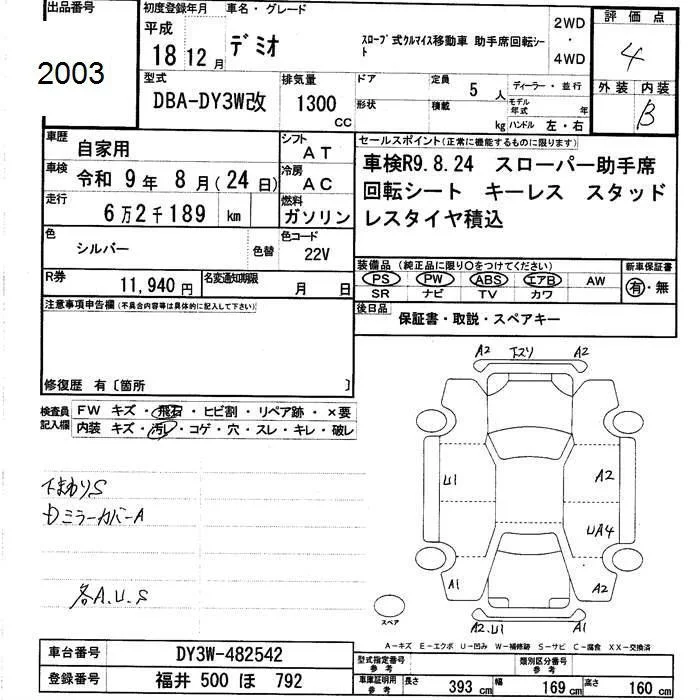 出品番号
2003
初度登録年月 車名・グレード
平成
18年 12月 デミオ
スロープ式クルマイス移動車 助手席回転シート
2WD
・
4WD
評価点
4
外装 内装
B
型式
DBA-DY3W改
排気量
1300
CC
ドア
定員
5人
ディーラー・並行
形状
積載
kg
モデル年式 年
ハンドル 左・右
車歴
自家用
シフト
AT
車検
令和 9年 8月(24日)
冷房
AC
走行
6万2千189 km
燃料
ガソリン
色
シルバー
色替
色コード
22V
R券
11,940円
名変通知期限
月 日
セールスポイント(正常に機能するものに限ります)
車検R9.8.24 スローパー助手席
回転シート キーレス スタッド
レスタイヤ積込
装備品 (純正品に限り○をつけてください)
PS PW ABS エアB AW
SR ナビ TV カワ
新車保証書
有・無
後日品
保証書・取説・スペアキー
注意事項申告欄(不具合内容等は具体的に記入して下さい)
修復歴 有〔箇所 〕
検査員
記入欄
FW キズ・飛石・ヒビ割・リペア跡・×要
内装 キズ・汚レ・コゲ・穴・スレ・キレ・破レ
下まわりS
ミラーカバーA
各A.U.S
A2 下スリ A2
U1
A2
UA4
A1
A2
A2.U1
A1
スペア
A-キズ E-エクボ U-凹み W-補修跡 S-サビ C-腐食 XX-交換済
車台番号
DY3W-482542
登録番号
福井 500 ほ 792
型式指定番号
参考
類別区分番号
参考
車庫証明用
参考
長さ 393 cm 幅 169 cm 高さ 160 cm